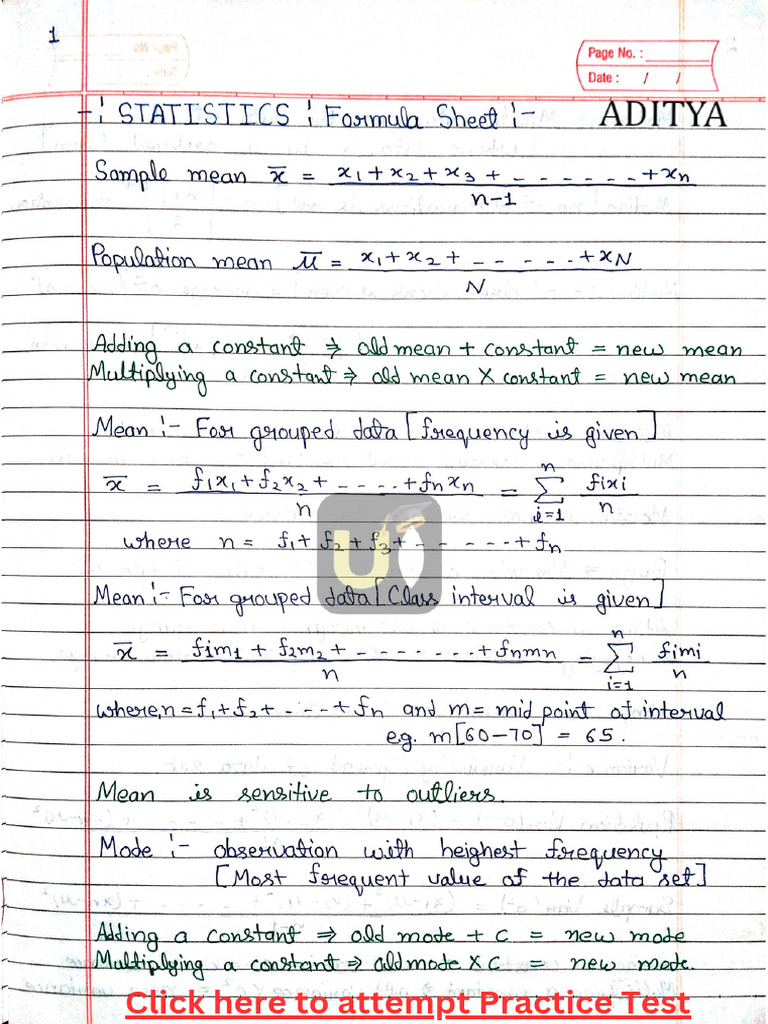 1
Page No. :
Date : / /
-: STATISTICS : Formula Sheet :-
ADITYA
Sample mean x̄ = x1 + x2 + x3 + - - - - - - + xn / n-1
Population mean μ̄ = x1 + x2 + - - - - - + xN / N
Adding a constant ⇒ old mean + constant = new mean
Multiplying a constant ⇒ old mean X constant = new mean
Mean :- For grouped data [frequency is given]
x̄ = f1x1 + f2x2 + - - - - + fnxn / n = n Σ i=1 fixi / n
where n = f1 + f2 + f3 + - - - - - - + fn
U
Mean :- For grouped data [Class interval is given]
x̄ = fim1 + f2m2 + - - - - - - - + fnmn / n = n Σ i=1 fimi / n
where, n = f1 + f2 + - - - + fn and m = mid point of interval
e.g. m[60-70] = 65.
Mean is sensitive to outliers.
Mode :- observation with heighest frequency
[Most frequent value of the data set]
Adding a constant ⇒ old mode + c = new mode
Multiplying a constant ⇒ old mode X C = new mode.
Click here to attempt Practice Test